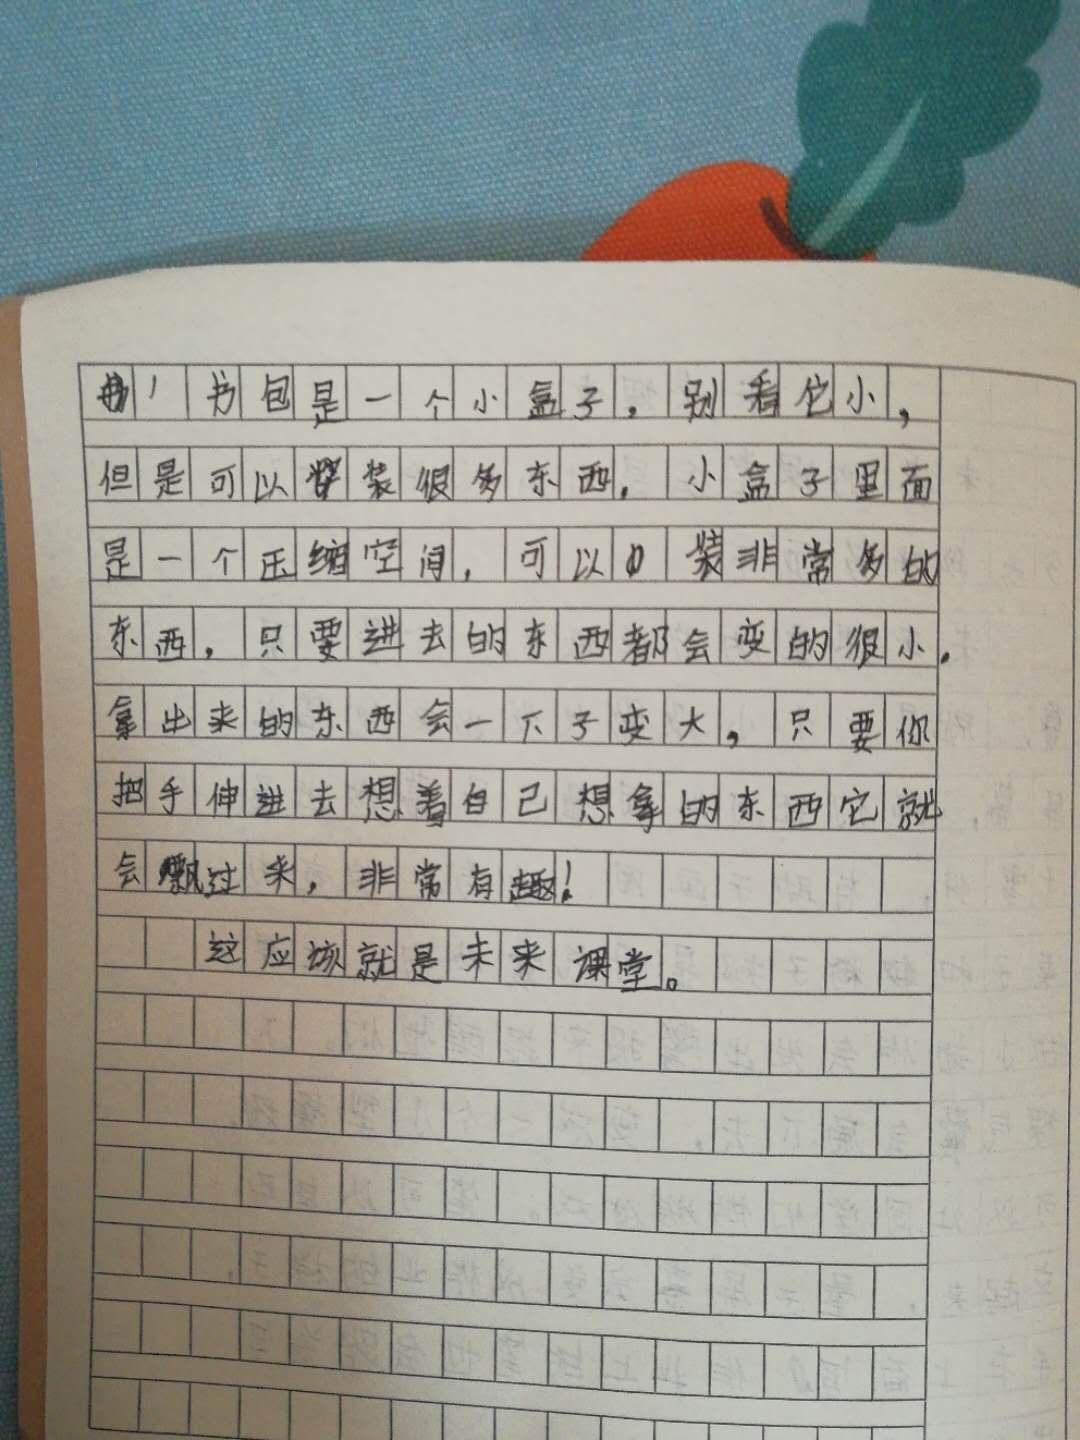 书包是一个小盒子，别看它小，
但是可以装很多东西，小盒子里面
是一个压缩空间，可以装非常多的
东西，只要进去的东西都会变的很小．
拿出来的东西会一下子变大，只要你
把手伸进去想着自己想拿的东西它就
会飘过来，非常有趣！
这应该就是未来课堂。